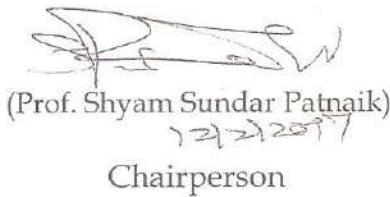 (Prof. Shyam Sundar Patnaik)
12/2/2017
Chairperson